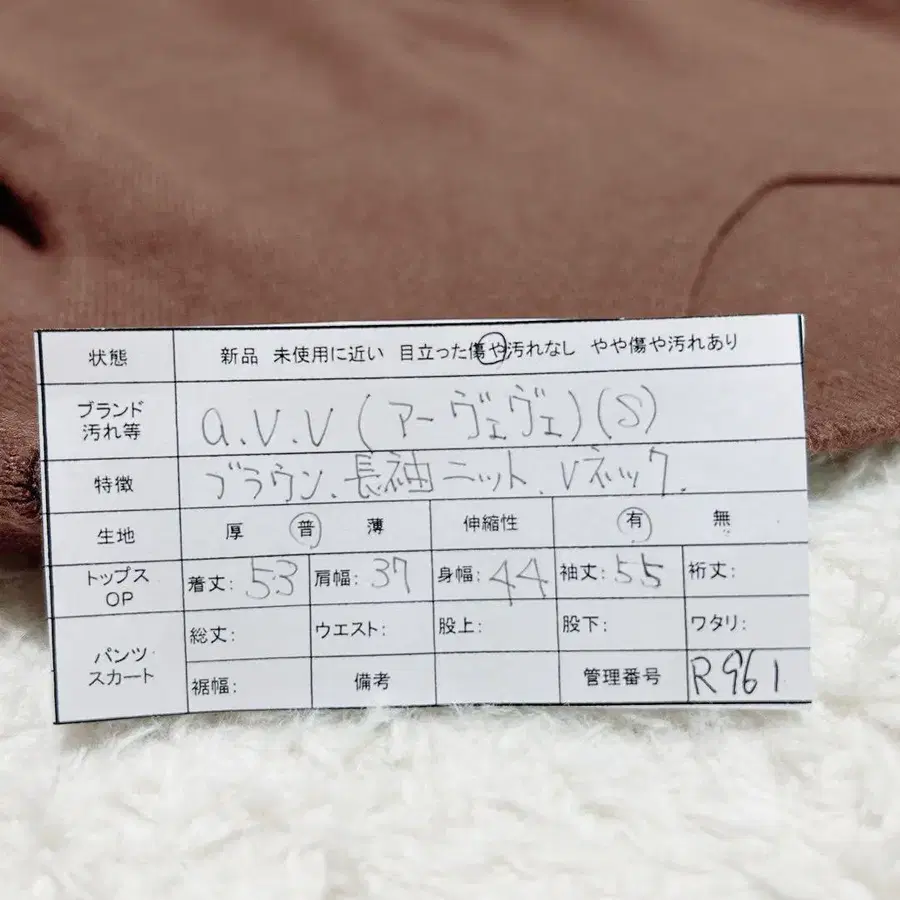 状態 新品 未使用に近い 目立った傷や汚れなし やや傷や汚れあり
ブランド
汚れ等
a.v.v (アーヴェヴェ)(S)
特徴 ブラウン、長袖ニット、Vネック、
生地 厚 普 薄 伸縮性 有 無
トップス
OP
着丈: 53 肩幅: 37 身幅: 44 袖丈: 55 裄丈:
パンツ
スカート
総丈: ウエスト: 股上: 股下: ワタリ:
裾幅: 備考 管理番号 R961